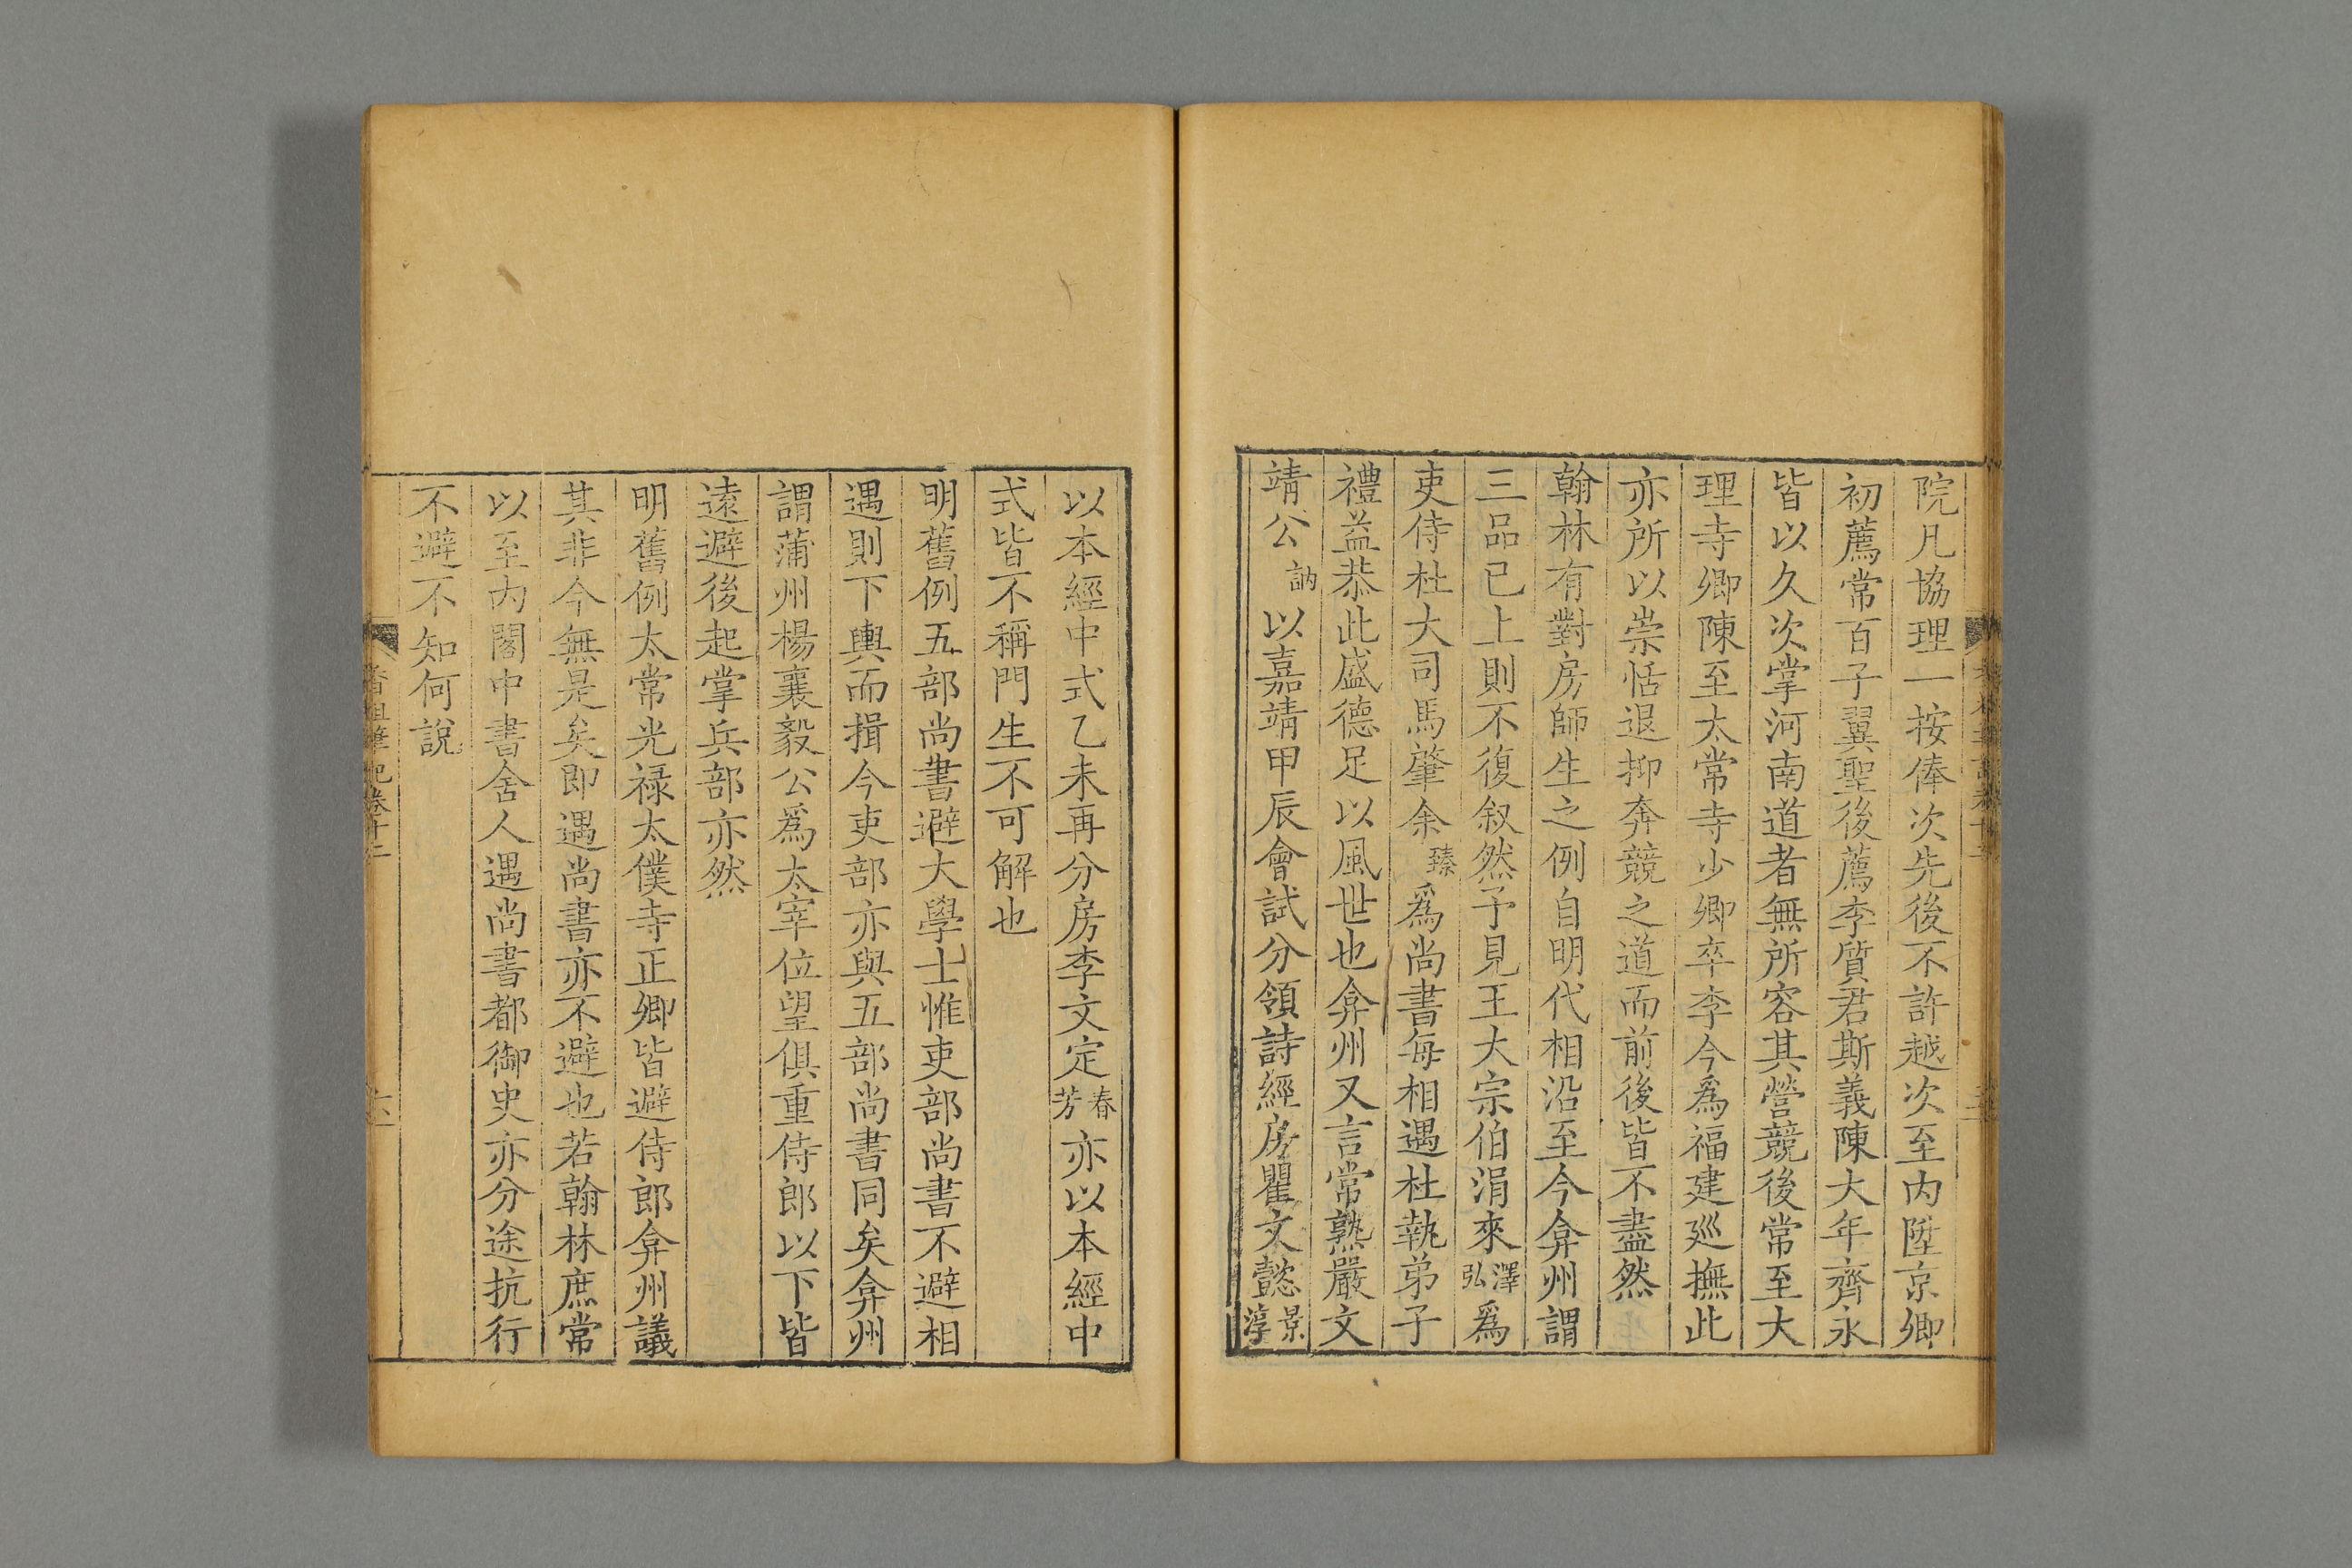 院凡協理一按俸次先後不許越次至内陞京卿
初薦常百子翼聖後薦李質君斯義陳大年齊永
皆以久次掌河南道者無所容其營競後常至大
理寺卿陳至太常寺少卿卒李今爲福建廵撫此
亦所以崇恬退抑奔競之道而前後皆不盡然
翰林有對房師生之例自明代相沿至今弇州謂
三品已上則不復叙然予見王大宗伯涓來澤弘爲
吏侍杜大司馬肇余臻爲尚書每相遇杜執弟子
禮益恭此盛德足以風世也弇州又言常熟嚴文
靖公訥以嘉靖甲辰會試分領詩經房瞿文懿景淳
以本經中式乙未再分房李文定春芳亦以本經中
式皆不稱門生不可解也
明舊例五部尚書避大學士惟吏部尚書不避相
遇則下輿而揖今吏部亦與五部尚書同矣弇州
謂蒲州楊襄毅公爲太宰位望俱重侍郎以下皆
遠避後起掌兵部亦然
明舊例太常光禄太僕寺正卿皆避侍郎弇州議
其非今無是矣即遇尚書亦不避也若翰林庶常
以至内閣中書舍人遇尚書都御史亦分途抗行
不避不知何說
香祖筆記卷十二